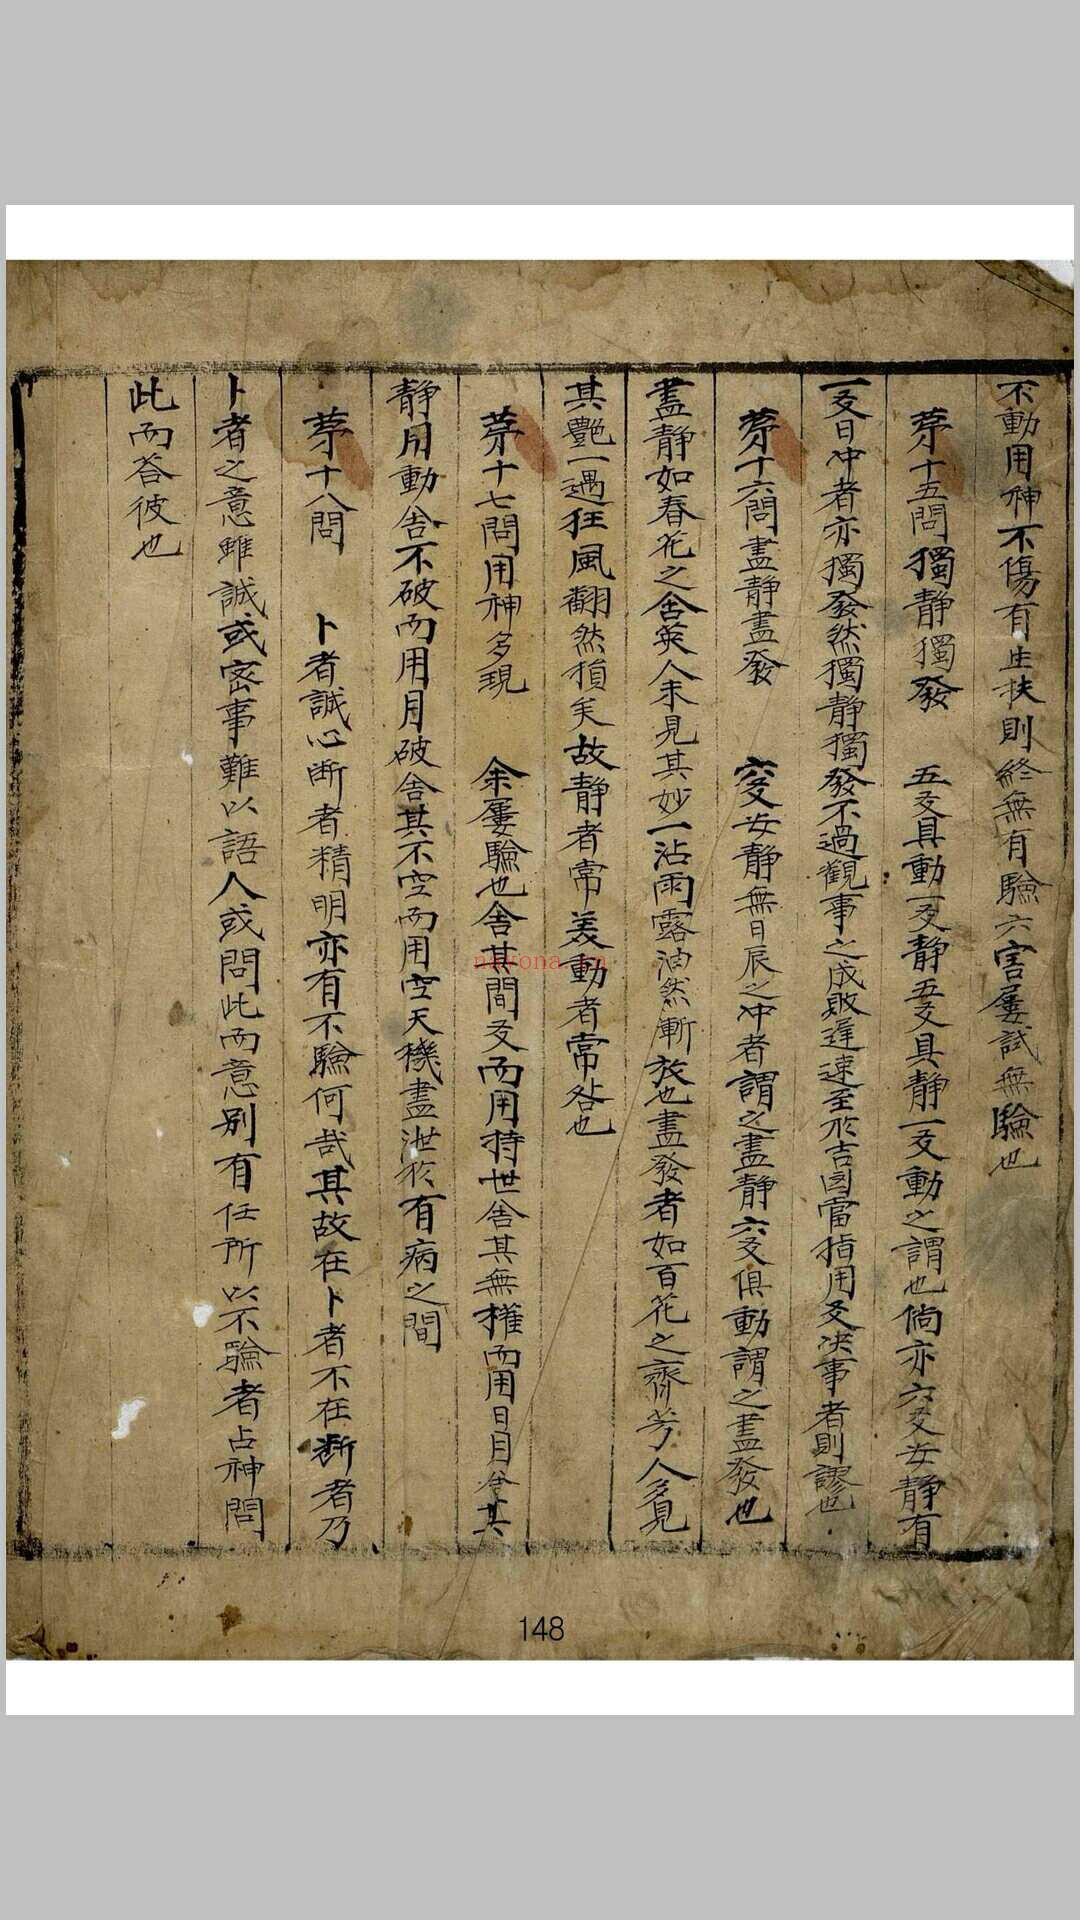 不動用神不傷有生扶則終無有驗六害屢試無驗也
苐十五問獨靜獨發　五爻具動一爻靜五爻具靜一爻動之謂也倘亦六爻安靜有
一爻日冲者亦獨發然獨靜獨發不過觀事之成敗遲速至於吉凶當指用爻决事者則謬也
苐十六問盡靜盡發　六爻安靜無日辰之冲者謂之盡靜六爻俱動謂之盡發也
盡靜如春花之含英人未見其妙一沾雨露油然漸放也盡發者如百花之齊芳人多見
其艷一遇狂風翻然損矣故靜者常美動者常咎也
苐十七問用神多現　余屢驗也舍其間爻而用持世舍其無權而用日月舍其
靜用動舍不破而用月破舍其不空而用空天機盡泄於有病之間
苐十八問　卜者誠心断者精明亦有不驗何哉其故在卜者不在断者乃
卜者之意雖誠或宻事難以語人或問此而意别有任所以不驗者占神問
此而荅彼也
148